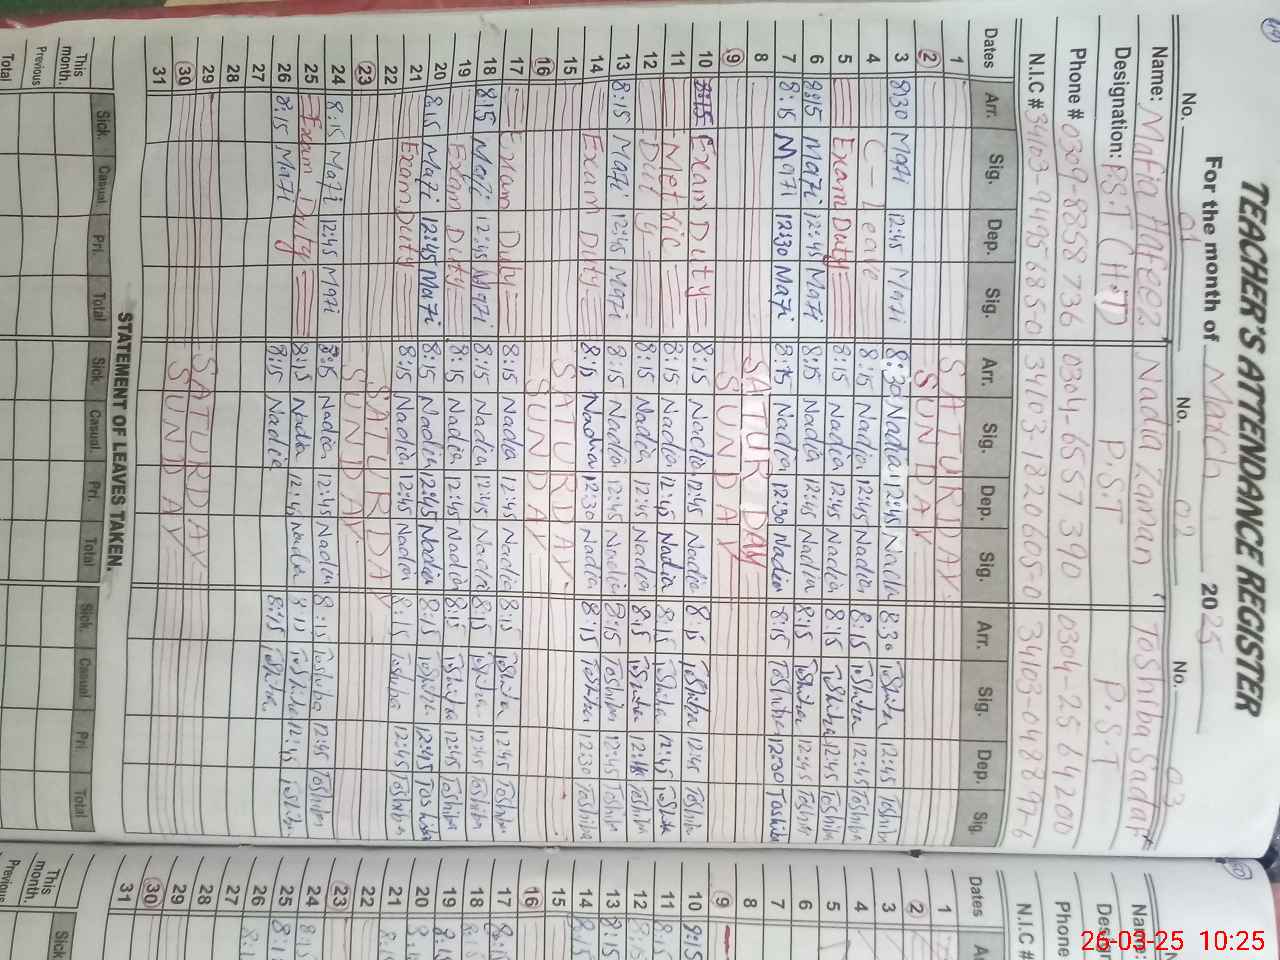 TEACHER'S ATTENDANCE REGISTER
For the month of March 2025
No. 01 No. 02 No. 03
Name: Mafia Hafeez Nadia Zaman Toshiba Sadat
Designation: P.S.T (H.T) P.S.T P.S.T
Phone # 0309-8858736 0304-6557390 0304-2564200
N.I.C # 34103-1820605-0
Dates Arr. Sig. Dep. Sig. Arr. Sig. Dep. Sig. Arr. Sig. Dep. Sig.
1 SATURDAY
2 SUNDAY
3 8:30 Mafi 12:45 Mafi 8:30 Nadia 12:45 Nadia 8:30 Toshiba 12:45 Toshiba
4 C-Leave 8:15 Nadia 12:45 Nadia 8:15 Toshiba 12:45 Toshiba
5 Exam Duty 8:15 Nadia 12:45 Nadia 8:15 Toshiba 12:45 Toshiba
6 8:15 Mafi 12:45 Mafi 8:15 Nadia 12:45 Nadia 8:15 Toshiba 12:45 Toshiba
7 8:15 Mafi 12:30 Mafi 8:15 Nadia 12:30 Nadia 8:15 Toshiba 12:30 Toshiba
8 SATURDAY
9 SUNDAY
10 8:15 Exam Duty 8:15 Nadia 12:45 Nadia 8:15 Toshiba 12:45 Toshiba
11 Metric 8:15 Nadia 12:45 Nadia 8:15 Toshiba 12:45 Toshiba
12 Duty 8:15 Nadia 12:45 Nadia 8:15 Toshiba Toshiba
13 8:15 Mafi 12:45 Mafi 8:15 Nadia 12:45 Nadia 8:15 Toshiba 12:45 Toshiba
14 Exam Duty 8:15 Nadia 12:30 Nadia 8:15 Toshiba 12:30 Toshiba
15 SATURDAY
16 SUNDAY
17 Exam Duty 8:15 Nadia 12:45 Nadia 8:15 Toshiba 12:45 Toshiba
18 8:15 Mafi 12:45 Mafi 8:15 Nadia 12:45 Nadia 8:15 Toshiba 12:45 Toshiba
19 Exam Duty 8:15 Nadia 12:45 Nadia 8:15 Toshiba 12:45 Toshiba
20 8:15 Mafi 12:45 Mafi 8:15 Nadia 12:45 Nadia 8:15 Toshiba 12:45 Toshiba
21 Exam Duty 8:15 Nadia 12:45 Nadia 8:15 Toshiba 12:45 Toshiba
22 SATURDAY
23 SUNDAY
24 8:15 Mafi 12:45 Mafi 8:15 Nadia 12:45 Nadia 8:15 Toshiba 12:45 Toshiba
25 Exam Duty 8:15 Nadia 12:45 Nadia 8:15 Toshiba 12:45 Toshiba
26 8:15 Mafi 8:15 Nadia 8:15 Toshiba
27
28
29 SATURDAY
30 SUNDAY
31
STATEMENT OF LEAVES TAKEN.
Sick. Casual Pri. Total Sick. Casual. Pri. Total Sick. Casual Pri Total
This month.
Previous
Total
Name:
Phone
N.I.C #
Dates
1
2
3
4
5
6
7
8
9
10 8:15
11 8:15
12 8:15
13 8:15
14 8:15
15
16
17 8:15
18 8:15
19
20
21
22
23
24
25
26
27
28
29
30
31
Sick
This month.
Previous
26-03-25 10:25